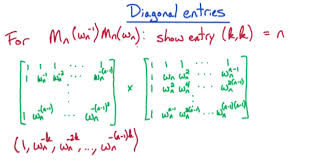 Diagonal entries
For Mₙ(ωₙ⁻¹)Mₙ(ωₙ): show entry (k,k) = n
[ 1 1 1 ⋯ 1 ] × [ 1 1 1 ⋯ 1 ]
[ 1 ωₙ⁻¹ ωₙ⁻² ⋯ ωₙ⁻⁽ⁿ⁻¹⁾ ] [ 1 ωₙ ωₙ² ⋯ ωₙⁿ⁻¹ ]
[ 1 ωₙ² ωₙ⁴ ⋯ ωₙ²⁽ⁿ⁻¹⁾ ]
⋮ ⋮
[ 1 ωₙ⁻⁽ⁿ⁻¹⁾ ⋯ ωₙ⁻⁽ⁿ⁻¹⁾² ] [ 1 ωₙⁿ⁻¹ ωₙ²⁽ⁿ⁻¹⁾ ⋯ ωₙ⁽ⁿ⁻¹⁾⁽ⁿ⁻¹⁾ ]
(1, ωₙ⁻ᵏ, ωₙ⁻²ᵏ, ..., ωₙ⁻⁽ⁿ⁻¹⁾ᵏ)